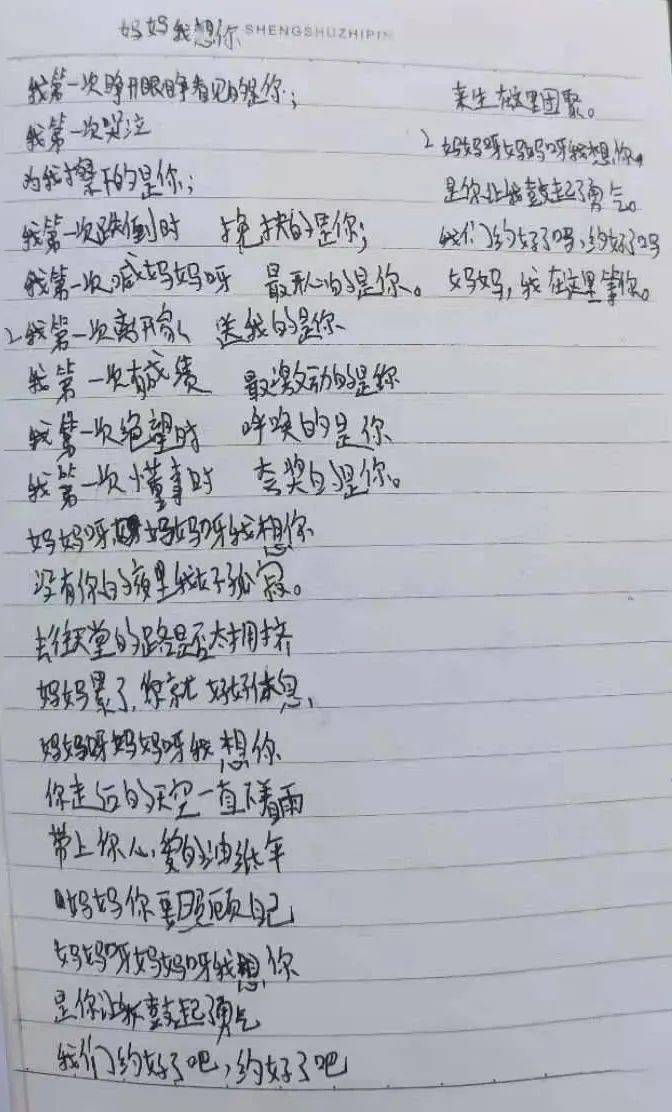 妈妈我想你 SHENGSHUZHIPIN
我第一次睁开眼睁看见的是你;
我第一次哭泣
为我擦下的是你;
我第一次跌倒时 挽扶的是你;
我第一次喊妈妈呀 最开心的是你。
2 我第一次离开家 送我的是你
我第一次有成绩 最激动的是你
我第一次绝望时 呼唤的是你
我第一次懂事时 夸奖的是你。
妈妈呀妈妈呀我想你
没有你的夜里我好孤寂。
去往天堂的路是否太拥挤
妈妈累了,你就好好休息,
妈妈呀妈妈呀我想你
你走后的天空一直下着雨
带上你心爱的油纸伞
妈妈你要照顾自己
妈妈呀妈妈呀我想你
是你让我鼓起了勇气
我们约好了吧,约好了吧
来生在这里团聚。
2 妈妈呀妈妈呀我想你,
是你让我鼓起了勇气。
我们约好了吗,约好了吗
妈妈,我在这里等你。